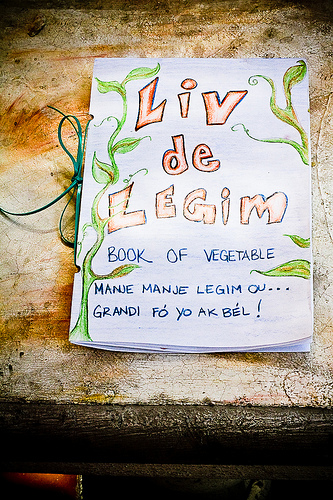 Liv
de
LEGiM
BOOK OF VEGETABLE
MANJE MANJE LEGIM OU...
GRANDI FÓ YO AK BÉL!